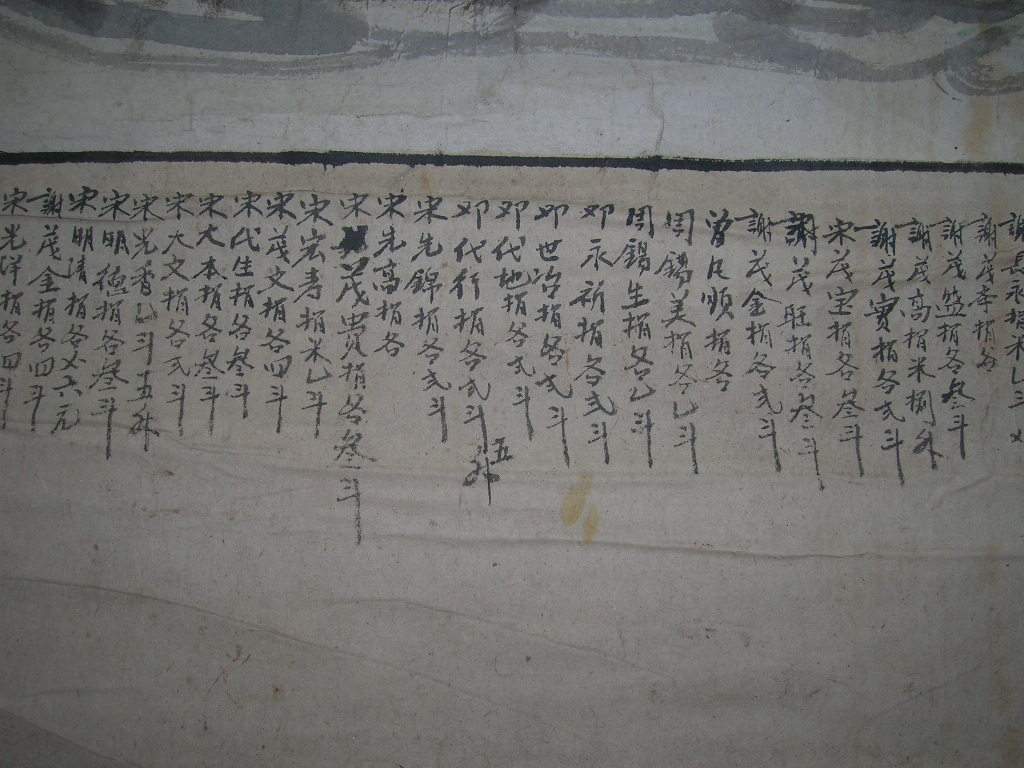 謝長永捐米乙斗
謝茂孝捐各
謝茂盛捐各叁斗
謝茂高捐米捌升
謝茂實捐各弍斗
宋茂宝捐各叁斗
謝茂旺捐各叁斗
謝茂金捐各弍斗
曾民順捐各
周錫美捐各乙斗
周錫生捐各乙斗
邓永祈捐各弍斗
邓世治捐各弍斗
邓代地捐各弍斗
邓代行捐各弍斗五升
宋先錦捐各弍斗
宋先高捐各
宋茂貴捐各叁斗
宋宏寿捐米乙斗
宋茂文捐各四斗
宋代生捐各叁斗
宋大本捐各叁斗
宋大文捐各弍斗
宋光香乙斗五升
宋明德捐各叁斗
宋明清捐各六元
謝茂金捐各四斗
宋光祥捐各四斗